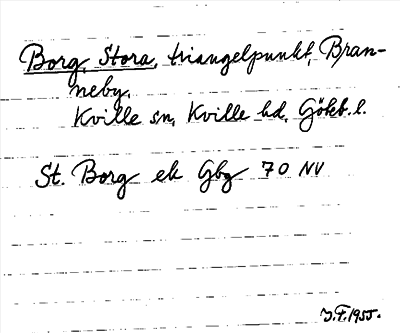 Borg, Stora, triangelpunkt, Bran-
neby,
Kville sn, Kville hd, Götéb. l.
St. Borg ek Gbg 70 NV
J.F. 1955.